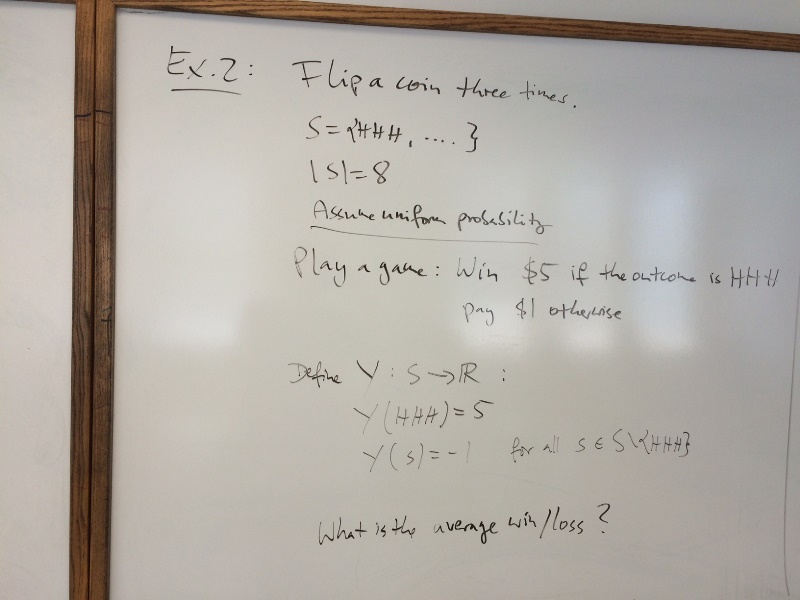 Ex. 2: Flip a coin three times.
S = {HHH, .... }
|S| = 8
Assume uniform probability
Play a game: Win $5 if the outcome is HHH
pay $1 otherwise
Define Y : S → ℝ :
Y(HHH) = 5
Y(s) = -1 for all s ∈ S\{HHH}
What is the average win/loss?